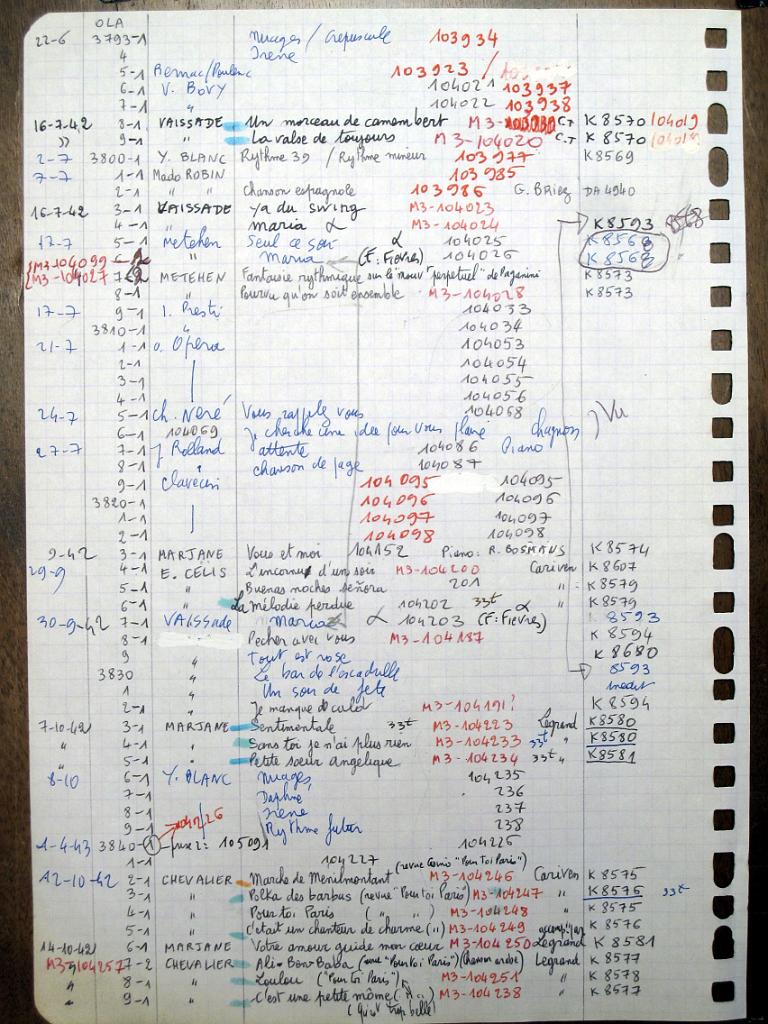 OLA
22-6 3793-1 Nuages / Crepuscule 103934
4 Irene
5-1 Bernac/Poulenc 103923 /
6-1 V. Bovy 104021 103937
7-1 " 104022 103938
16-7-42 8-1 VAISSADE Un morceau de camembert M3- C.T K8570 104019
" 9-1 " La valse de toujours M3-104020 C.T K8570
2-7 3800-1 Y. BLANC Rythme 39 / Rythme mineur 103977 K8569
7-7 1-1 Mado ROBIN 103985
2-1 " " Chanson espagnole 103986 G. Briez DA 4940
16-7-42 3-1 VAISSADE Ya du swing M3-104023
4-1 " maria α M3-104024 K8593
17-7 5-1 Metehen Seul ce soir α 104025 K8568
{M3-104099 " Maria (F: Fievres) 104026 K8568
{M3-104027 7-2 METEHEN Fantaisie rythmique sur le mouv "perpetuel" de Paganini K8573
8-1 " Pourvu qu'on soit ensemble M3-104028 K8573
17-7 9-1 I. Presti 104033
3810-1 " 104034
21-7 1-1 o. Opera 104053
2-1 104054
3-1 104055
4-1 104056
24-7 5-1 Ch. Neré Vous rappelez vous 104068
6-1 104069 Je cherche une idee pour vous plaire chagnon ) Vu
27-7 7-1 J Rolland attente 104086 Piano
8-1 " chanson de page 104087
9-1 Clavecin 104095 104095
3820-1 104096 104096
1-1 104097 104097
2-1 104098 104098
9-42 3-1 MARJANE Vous et moi 104152 Piano: R. BOSMANS K8574
29-9 4-1 E. CELIS L'inconnu d'un soir M3-104200 Cariven K8607
5-1 " Buenas noches señora 201 " K8579
6-1 " La mélodie perdue 104202 33t " K8579
30-9-42 7-1 VAISSADE Maria α 104203 (F: Fievres) 8593
8-1 Pecher avec vous M3-104187 K8594
9 " Tout est rose K8680
3830 " Le bar de l'escadrille 8593
1 " Un soir de fete inedit
2-1 " Je manque de culot M3-104191? K8594
7-10-42 3-1 MARJANE Sentimentale 33t M3-104223 Legrand K8580
" 4-1 " Sans toi je n'ai plus rien M3-104233 33t " K8580
" 5-1 " Petite sœur angelique M3-104234 33t " K8581
8-10 6-1 Y. BLANC Nuages 104235
7-1 Daphné 236
8-1 Irene 237
9-1 Rythme futur 238
104226
1-4-43 3840-1 prise 2: 105091 104226
1-1 104227 (revue Casino "Pour Toi Paris")
12-10-42 2-1 CHEVALIER Marche de Menilmontant M3-104246 Cariven K8575
3-1 " Polka des barbus (revue "Pour toi Paris") M3-104247 " K8575 33t
4-1 " Pour toi Paris ( " " ) M3-104248 " K8575
5-1 " C'etait un chanteur de charme (") M3-104249 K8576
14-10-42 6-1 MARJANE Votre amour guide mon cœur M3-104250 Legrand K8581
M3-104257 7-2 CHEVALIER Ali-Ben-Baba (revue "Pour toi Paris") (Chanson arabe) Legrand K8577
" 8-1 " Loulou ("Pour toi Paris") M3-104251 " K8578
" 9-1 " C'est une petite môme ( ") M3-104238 " K8577
(Qu'est trop belle)